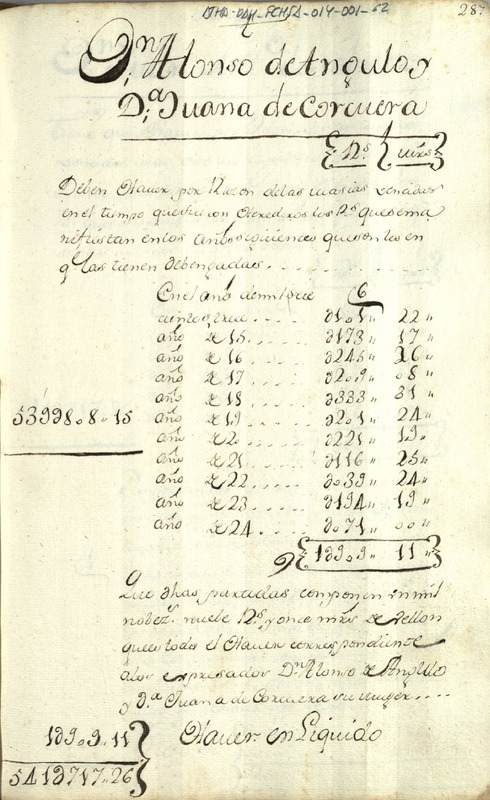 ATHA-DAH-FCHSA-014-001-52
287
Dn. Alonso de Angulo y
D.ª Juana de Corcuera
R.s mrs
Deben Haver por Razon de las
en el tiempo que fueron Herederos los R.s que se ma
nifiestan en los años siguientes que son los en
q.e las tienen debengadas
En el año de mil setecie
años de 15 .... 173 17
año de 16 .... 245 26
año de 17 .... 209 08
año de 18 .... 333 31
53998 8 15
año de 19 .... 201 24
año de 20 .... 221 19
año de 21 .... 116 25
año de 22 .... 039 24
año de 23 .... 194 19
año de 24 .... 071 00
1909 11
Que dhas partidas componen mil
nobez.s nuebe R.s y once mrs de Vellon
que es todo el Haver correspondiente
a los expresados Dn. Alonso de Angulo
y D.ª Juana de Corcuera su muger
1909 11
Haver en Liquido